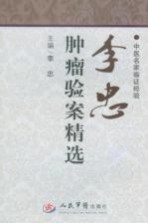 中医名家临证经验
李忠
主编 李忠
肿瘤验案精选
人民军医出版社